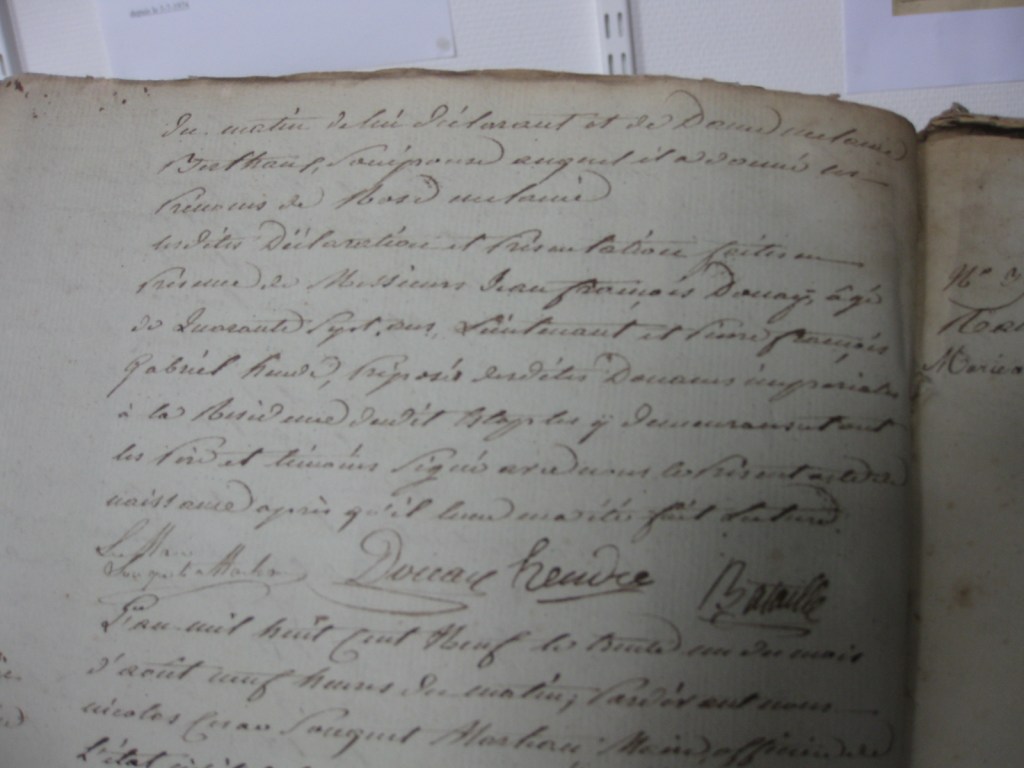 du matin de lui Déclarant et de Dame melanie
son épouse auquel il a donné les
Prenoms de Rose melanie
lesdites Déclaration et Présentation faites en
Présence de Messieurs Jean françois Douay, âgé
de Quarante Sept ans, Lieutenant et Pierre françois
Gabriel hendré, Préposés desdites Douanes impériales
à la Résidence dudit Etaples y demeurans et ont
les Père et témoins Signé avec nous le Présent acte de
naissance après qu'il leur en a été fait lecture
Le Maire
Souquet Marteau
Douay hendre Bataille
L'an mil huit Cent Neuf le trente un du mois
d'août neuf heures du matin, Pardevant nous
nicolas Souquet Marteau Maire, officier de
L'état
N°
Marie